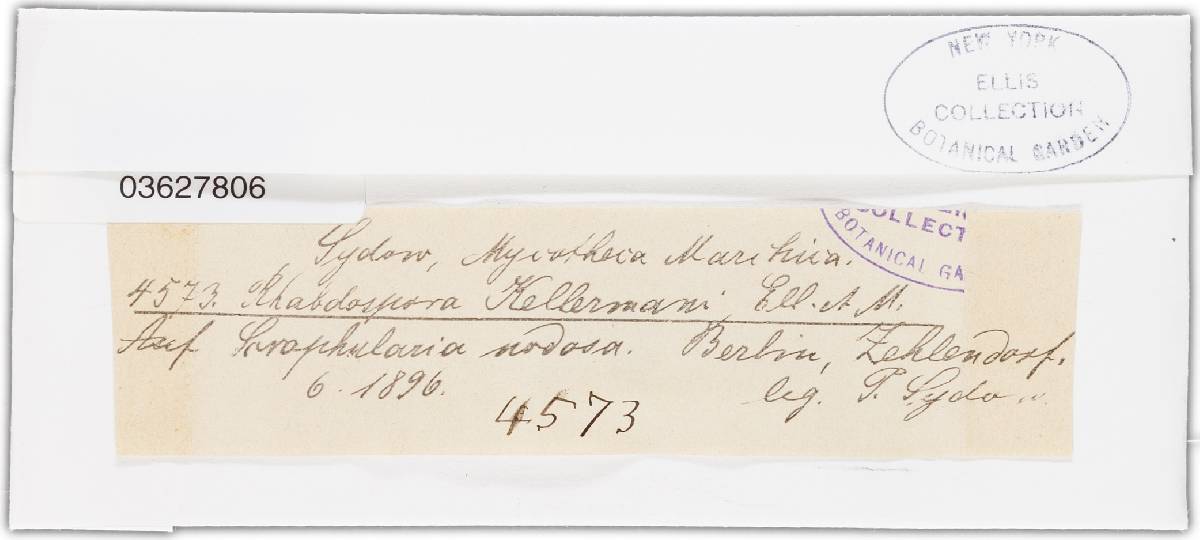 NEW YORK
ELLIS
COLLECTION
BOTANICAL GARDEN
03627806
COLLECT
BOTANICAL GA
Sydow, Mycotheca Marchica.
4573. Rhabdospora Kellermani, Ell. et M.
Auf Scrophularia nodosa. Berlin, Zehlendorf.
6. 1896. leg. P. Sydow.
4573